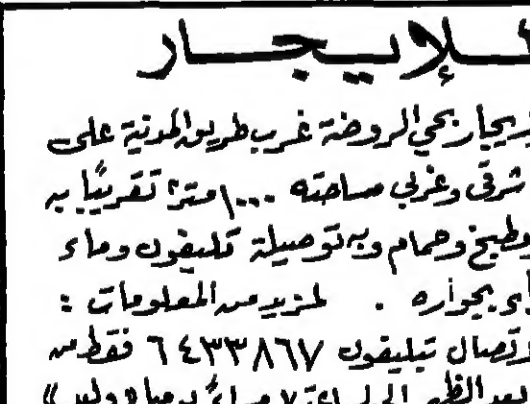 للإيجار
لإيجار بحي الروضة غرب طريق المدينة على
شرقي وغربي مساحته ١٠٠٠ متر تقريبًا به
ومطبخ وحمام وبه توصيلة تليفون وماء
بجواره . لمزيد من المعلومات :
إتصال تيليفون ٦٤٣٣٨٦٧ فقط من
بعد الظهر إلى الساعة ٧ مساءً يوميا «وليد»